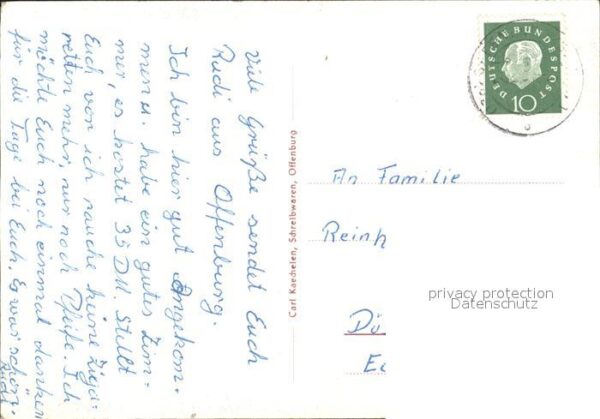 Viele Grüße sendet Euch
Rudi aus Offenburg.
Ich bin hier gut angekom-
men u. habe ein gutes Zim-
mer, es kostet 35 DM. Stellt
Euch vor ich rauche keine Ziga-
retten mehr, nur noch Pfeife. Ich
möchte Euch noch einmal danken
für die Tage bei Euch. Es war schön.
Rudi
Carl Kaechelen, Schreibwaren, Offenburg
DEUTSCHE BUNDESPOST
10
An Familie
Reinh
privacy protection
Datenschutz
Dü